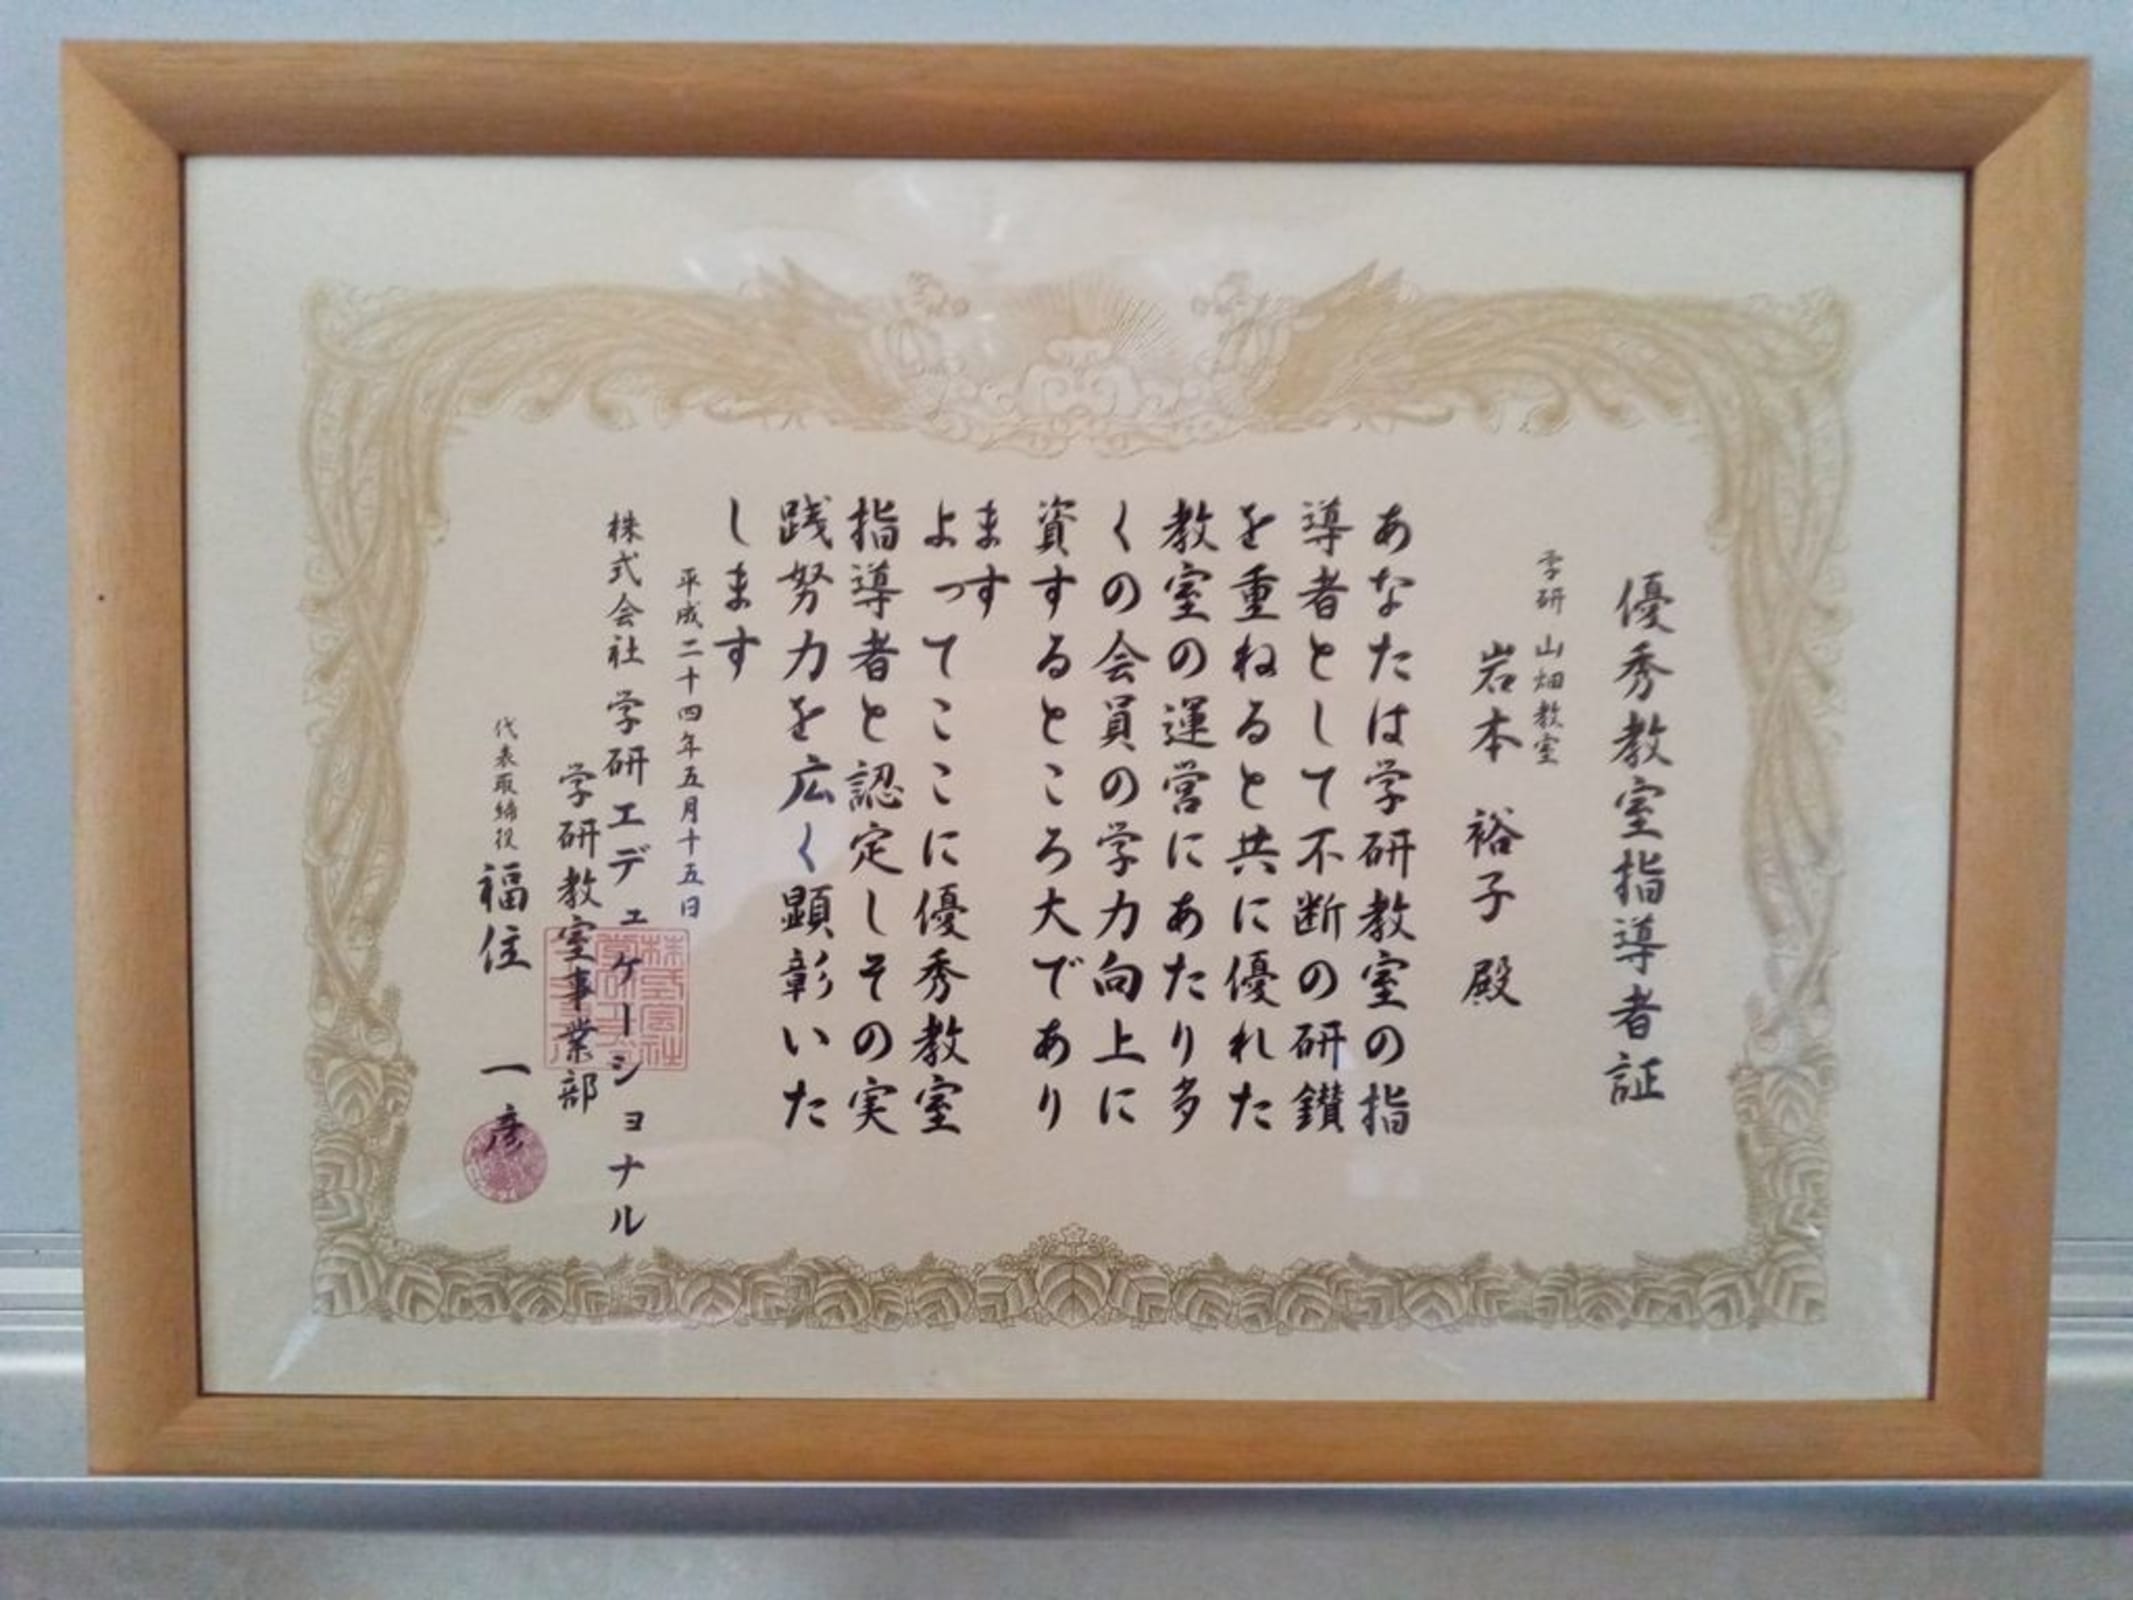 優秀教室指導者証
学研 山畑教室
岩本 裕子 殿
あなたは学研教室の指
導者として不断の研鑚
を重ねると共に優れた
教室の運営にあたり多
くの会員の学力向上に
資するところ大であり
ます
よってここに優秀教室
指導者と認定しその実
践努力を広く顕彰いた
します
平成二十四年五月十五日
株式会社 学研エデュケーショナル
学研教室事業部
代表取締役 福住 一彦